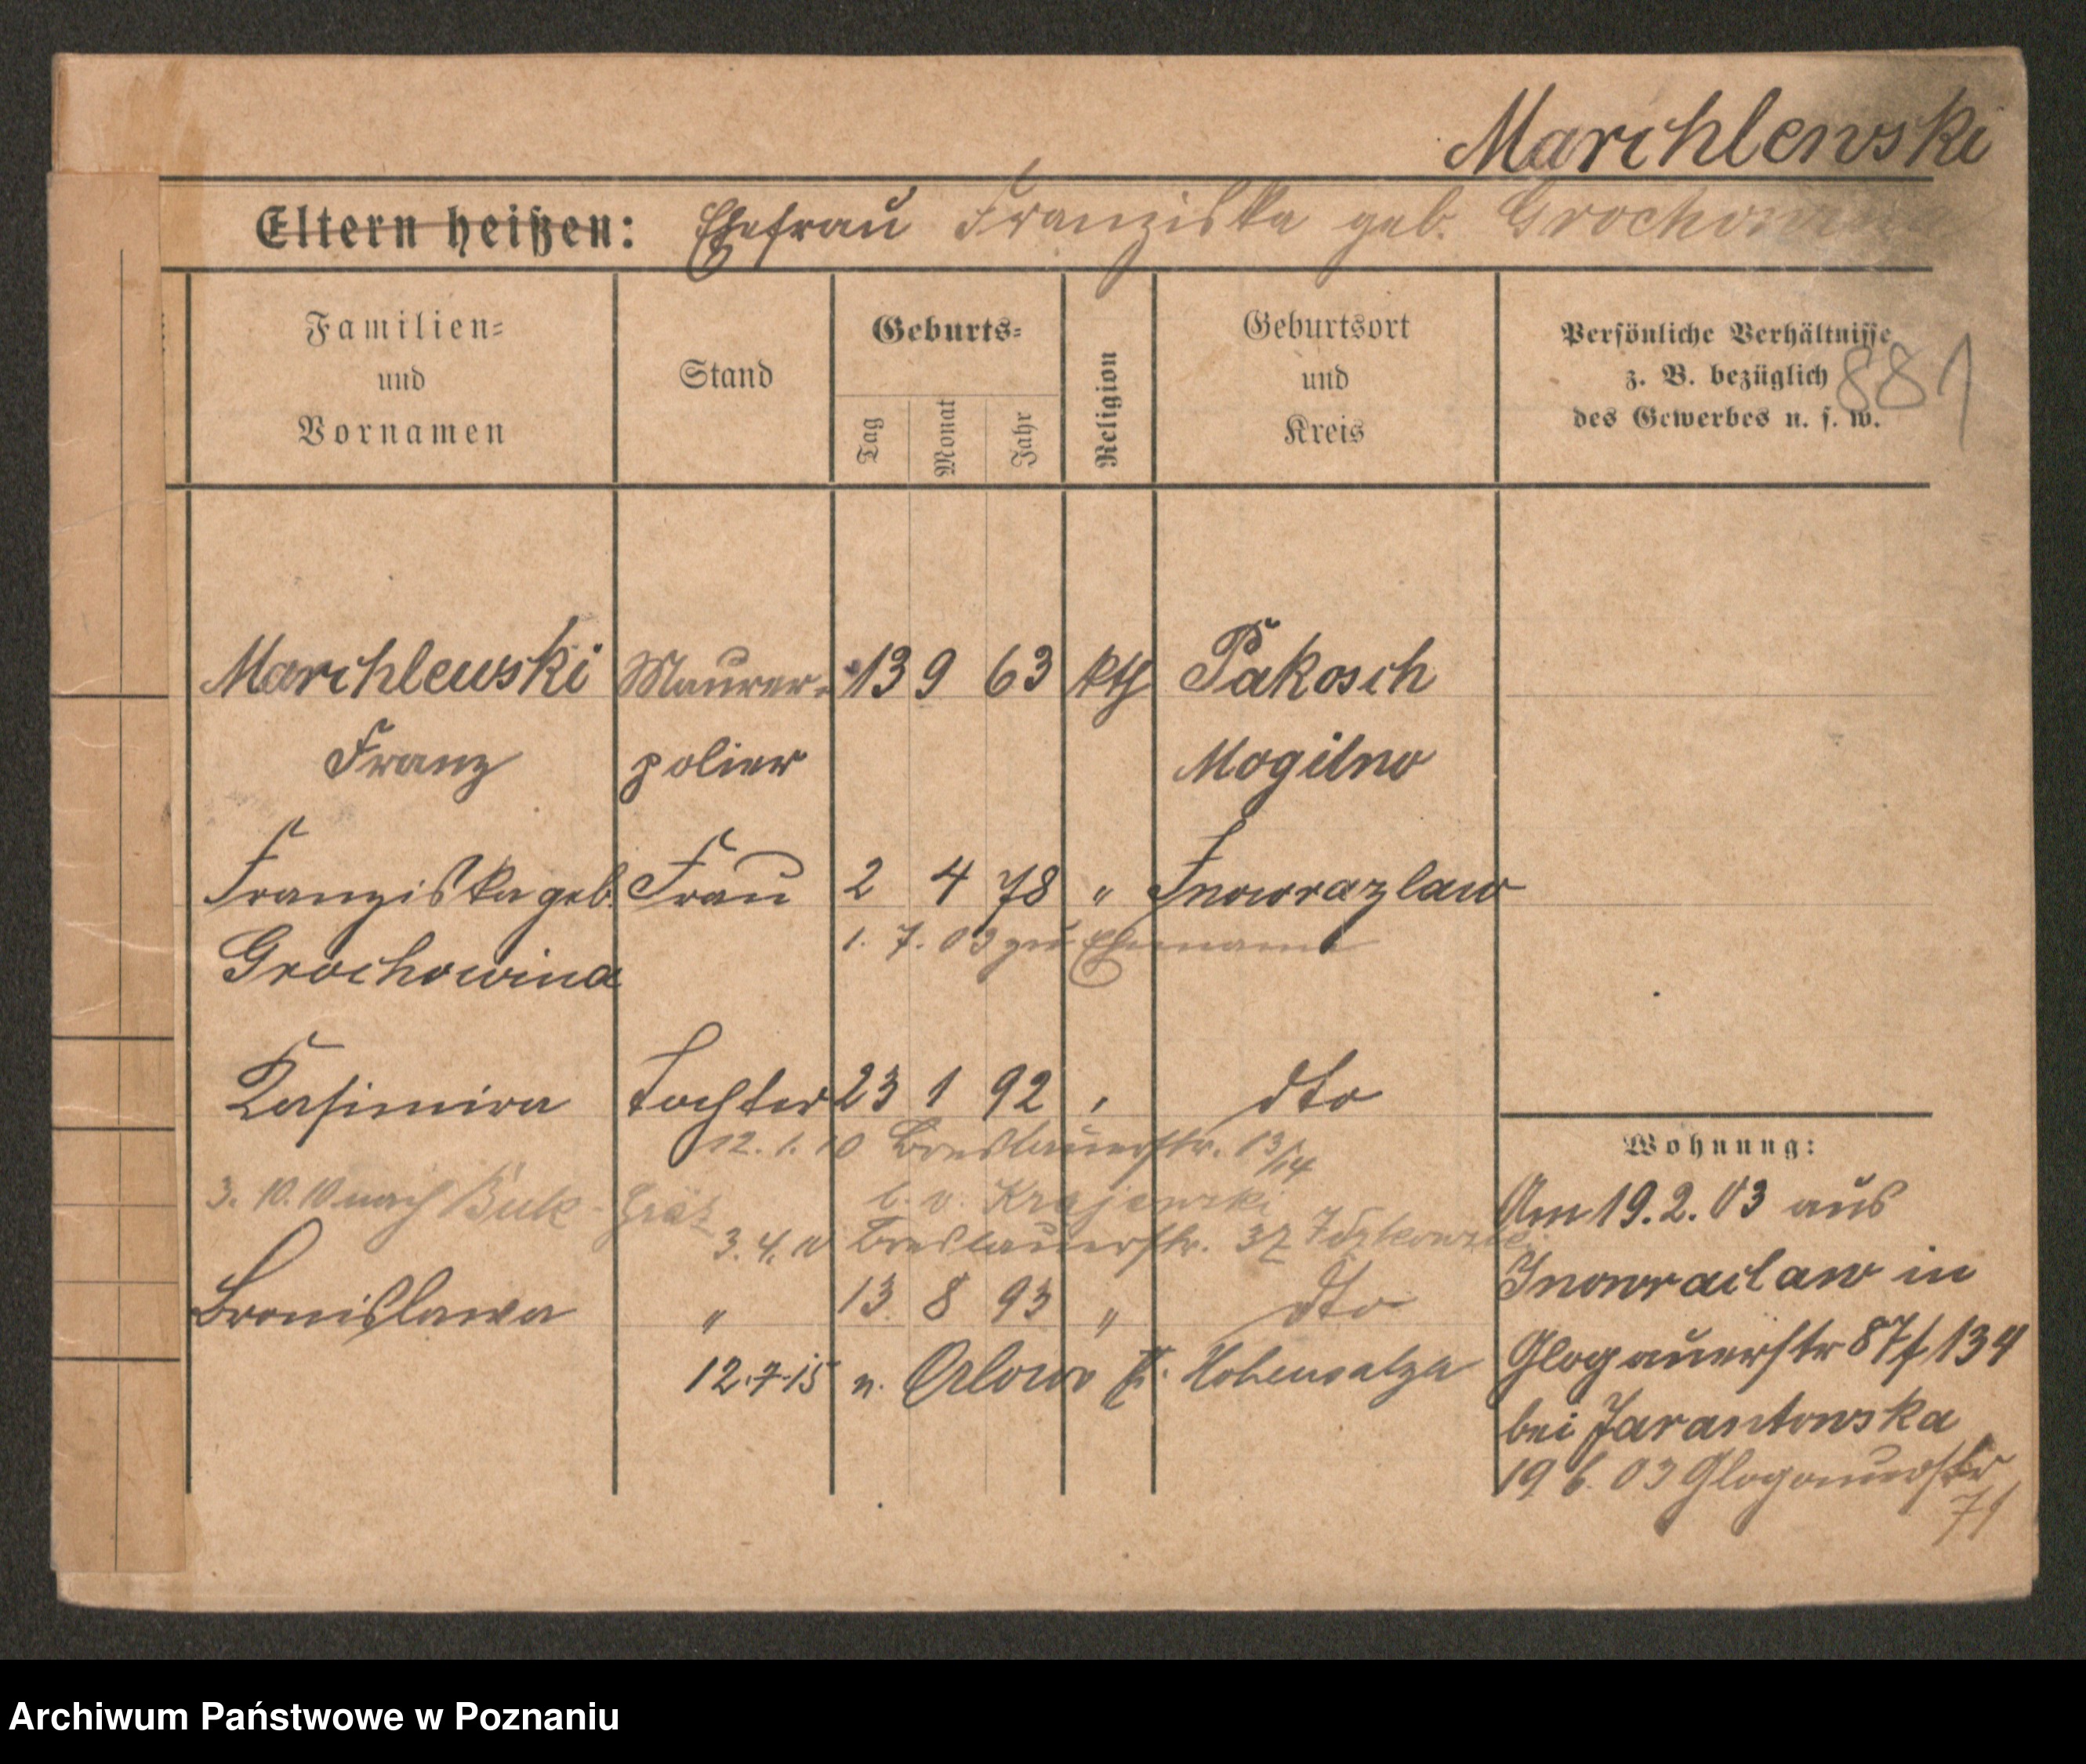 Marchlewski
Eltern heißen: Ehefrau Franziska geb. Grochowina
Familien- und Vornamen
Stand
Geburts-
Tag
Monat
Jahr
Religion
Geburtsort und Kreis
Persönliche Verhältnisse
z. B. bezüglich
des Gewerbes u. s. w.
881
Marchlewski Maurer- 13 9 63 kth Pakosch
Franz polier Mogilno
Franziska geb. Frau 2 4 78 " Inowrazlaw
1. 7. 03 zu Ehemann
Grochowina
Kasimira Tochter 23 1 92 " dto
12. 1. 10 Breslauerstr. 13/14
3. 10. 10 nach Buk - Grätz b. v. Krajewski
3. 4. Breslauerstr. 37
Bronislawa " 13. 8 93 " dto
12.7.15 n. Orlowo K. Hohensalza
Wohnung:
Am 19. 2. 03 aus
Inowraclaw in
Glogauerstr 87 134
bei Jarantowska
19 6. 03 Glogauerstr
71
Archiwum Państwowe w Poznaniu